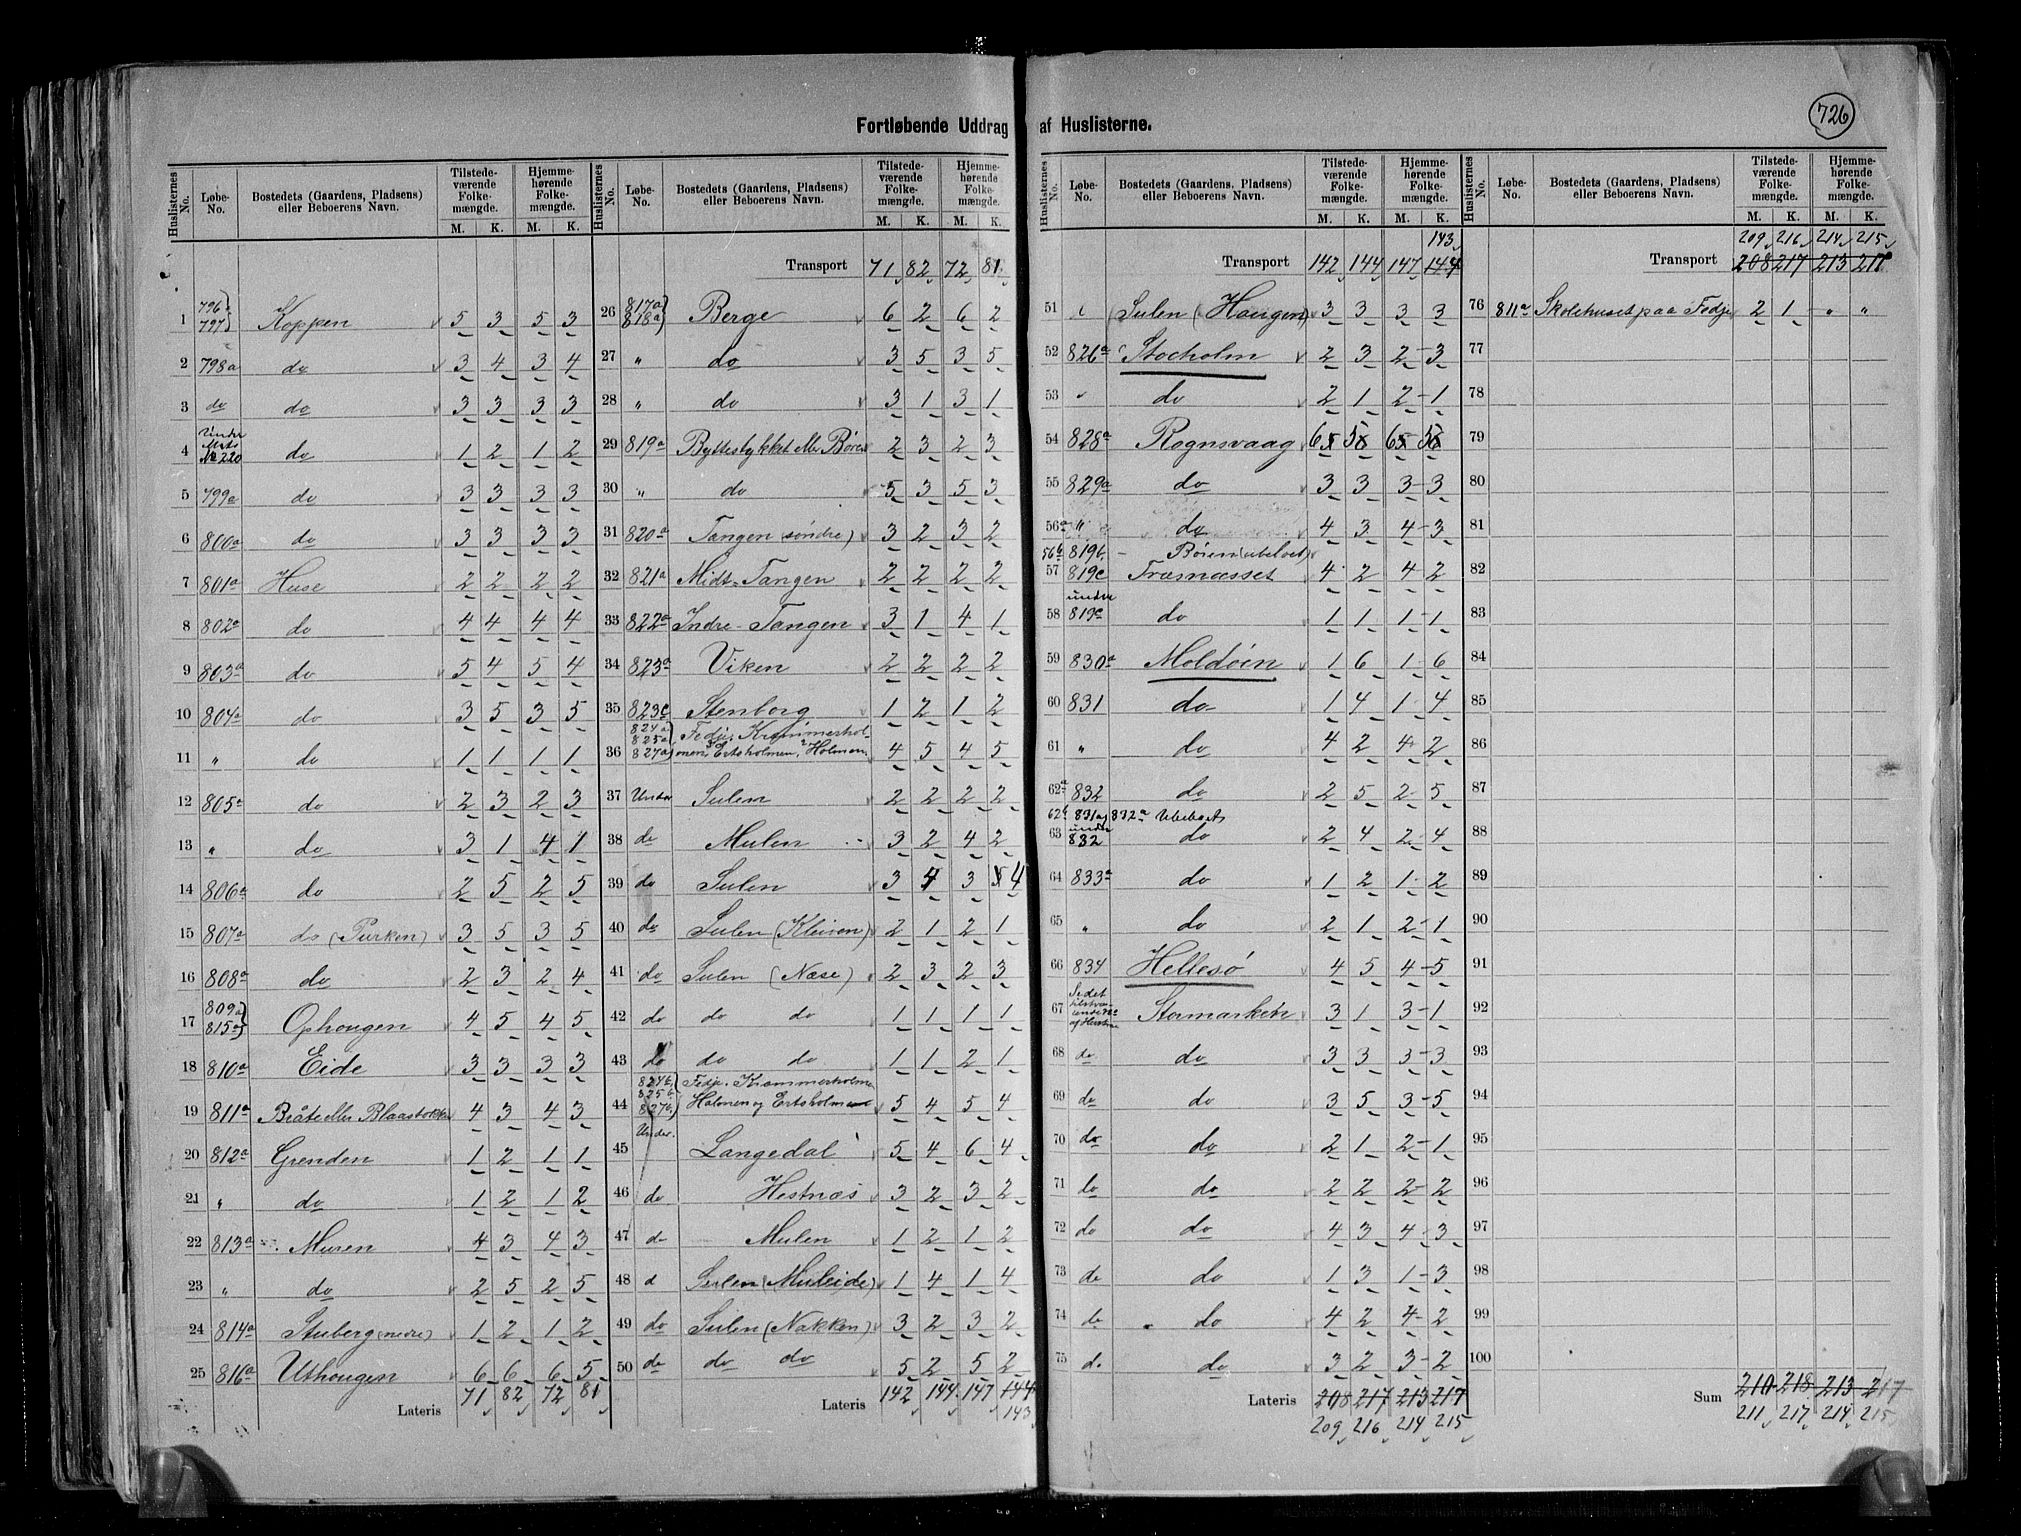 726
Fortløbende Uddrag af Huslisterne.
Huslisternes No. Løbe-No. Bostedets (Gaardens, Pladsens) eller Beboerens Navn. Tilstedeværende Folkemængde. M. K. Hjemmehørende Folkemængde. M. K.
1 796a 797 Koppen 5 3 5 3
2 798a do 3 4 3 4
3 do do 3 3 3 3
4 Under Mats No 220 do 1 2 1 2
5 799a do 3 3 3 3
6 800a do 3 3 3 3
7 801a Huse 2 2 2 2
8 802a do 4 4 4 4
9 803a do 5 4 5 4
10 804a do 3 5 3 5
11 " do 1 1 1 1
12 805a do 2 3 2 3
13 " do 3 1 4 1
14 806a do 2 5 2 5
15 807a do (Purken) 3 5 3 5
16 808a do 2 3 2 4
17 809a 815a Ophougen 4 5 4 5
18 810a Eide 3 3 3 3
19 811a Bråte eller Blaastokken 4 3 4 3
20 812a Grenden 1 2 1 1
21 " do 1 2 1 2
22 813a Muren 4 3 4 3
23 " do 2 5 2 5
24 814a Stuberg (nedre) 1 2 1 2
25 816a Uthougen 6 6 6 5
Lateris 71 82 72 81
Huslisternes No. Løbe-No. Bostedets (Gaardens, Pladsens) eller Beboerens Navn. Tilstedeværende Folkemængde. M. K. Hjemmehørende Folkemængde. M. K.
Transport 71 82 72 81
26 817a 818a Berge 6 2 6 2
27 " do 3 5 3 5
28 " do 3 1 3 1
29 819a Byttestykket eller Børen 2 3 2 3
30 " do 5 3 5 3
31 820a Tangen søndre) 3 2 3 2
32 821a Midt-Tangen 2 2 2 2
33 822a Indre-Tangen 3 1 4 1
34 823a Viken 2 2 2 2
35 823c Stenborg 1 2 1 2
36 824a 825a 827a Fedje. Krammerholmen, Ertsholmen, Holmen 4 5 4 5
37 Under Sulen 2 2 2 2
38 do Mulen 3 2 4 2
39 do Sulen 3 4 3 5 4
40 do Sulen (Kleiven) 2 1 2 1
41 do Sulen (Næse) 2 3 2 3
42 do do do 1 1 1 1
43 do do do 1 1 2 1
44 824b 825b 827b Fedje. Krammerholmen Holmen og Ertsholmen 5 4 5 4
45 Under. Langedal 5 4 6 4
46 do Hestnæs 3 2 3 2
47 do Mulen 1 2 1 2
48 d Sulen (Muleide) 1 4 1 4
49 do Sulen (Nakken) 3 2 3 2
50 do do do 5 2 5 2
Lateris 142 144 147 144
143
Huslisternes No. Løbe-No. Bostedets (Gaardens, Pladsens) eller Beboerens Navn. Tilstedeværende Folkemængde. M. K. Hjemmehørende Folkemængde. M. K.
143
Transport 142 144 147 144
51 " Sulen (Haugen) 3 3 3 3
52 826a Stocholm 2 3 2 3
53 " do 2 1 2 1
54 828a Rognsvaag 65 58 65 58
55 829a do 3 3 3 3
56a " do 4 3 4 3
56b 819b. Bøien (ubeboet)
57 819c Træsnæsset 4 2 4 2
58 under 819c do 1 1 1 1
59 830a Moldøin 1 6 1 6
60 831 do 1 4 1 4
61 " do 4 2 4 2
62a 832 do 2 5 2 5
62b 831a og 832a Ubeboet
63 under 832 do 2 4 2 4
64 833a do 1 2 1 2
65 " do 2 1 2 1
66 834 Hellesø 4 5 4 5
67 Stormarken 3 1 3 1
68 do do 3 3 3 3
69 do do 3 5 3 5
70 do do 2 1 2 1
71 do do 2 2 2 2
72 do do 4 3 4 3
73 do do 1 3 1 3
74 do do 4 2 4 2
75 do do 3 2 3 2
Lateris 208 217 213 217
209 216 214 215
Huslisternes No. Løbe-No. Bostedets (Gaardens, Pladsens) eller Beboerens Navn. Tilstedeværende Folkemængde. M. K. Hjemmehørende Folkemængde. M. K.
209 216 214 215
Transport 208 217 213 217
76 811a Skolehuset paa Fedje 2 1 " "
77
78
79
80
81
82
83
84
85
86
87
88
89
90
91
92
93
94
95
96
97
98
99
100
Sum 210 218 213 217
211 217 214 215